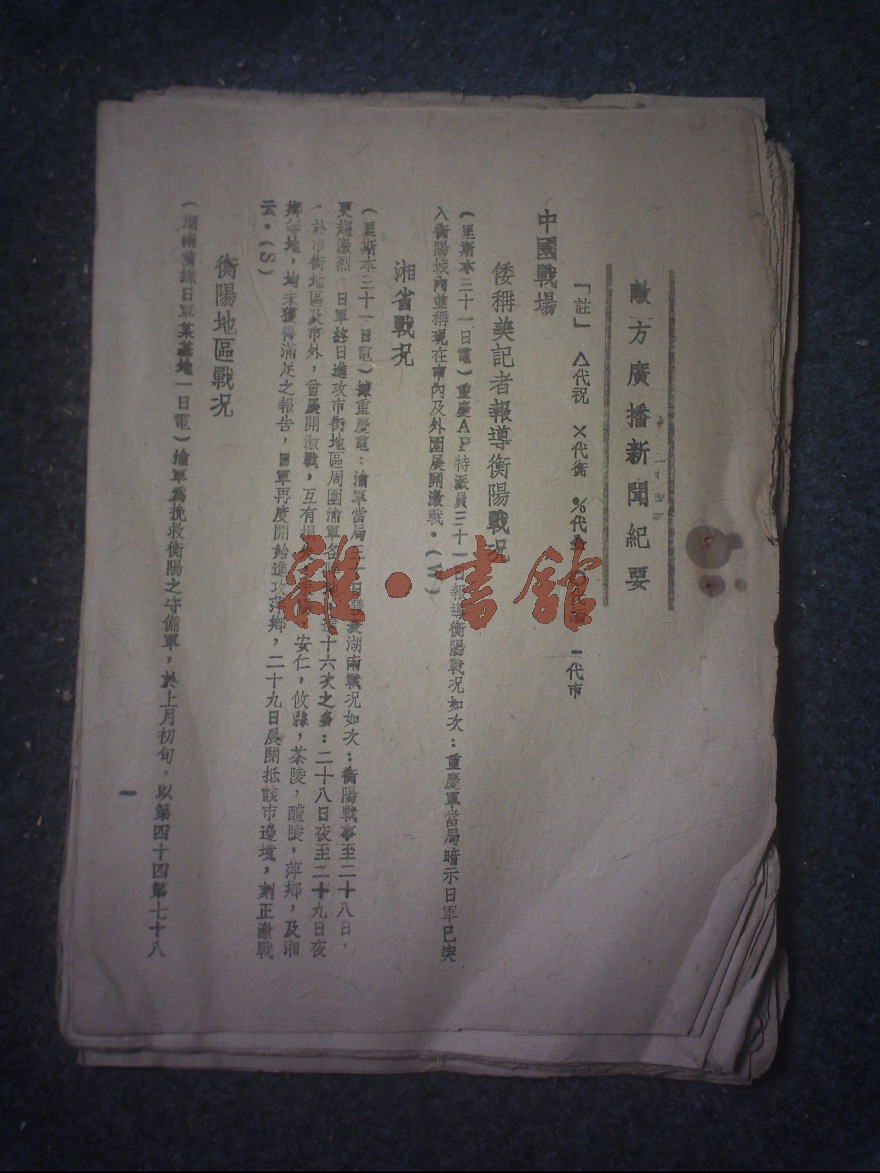 敵方廣播新聞紀要
「註」 △代祝 ×代衡 %代 代 一代市
中國戰場
倭稱美記者報導衡陽戰況
(里斯本三十一日電)重慶AP特派員三十一日報導衡陽戰況如次:重慶軍當局暗示日軍已突
入衡陽城內並稱現在市內及外圍展開激戰。(V)
湘省戰況
(里斯本三十一日電)據重慶電:渝軍當局三十日發表湖南戰況如次:衡陽戰事至二十八日,
更趨激烈,日軍終日進攻市街地區周圍渝軍各 達十六次之多:二十八日夜至二十九日夜
,於市街地區及市外,曾展開激戰,互有損 安仁,攸縣,茶陵,醴陵,萍鄉,及湘
鄉等地,均未獲得滿足之報告,日軍再度開始進攻萍鄉,二十九日晨開抵該市邊境,刻正激戰
云。(S)
衡陽地區戰況
(湖南前線日軍某基地一日電)渝軍為挽救衡陽之守備軍,於上月初旬,以第四十四第七十八
一
雜·書館